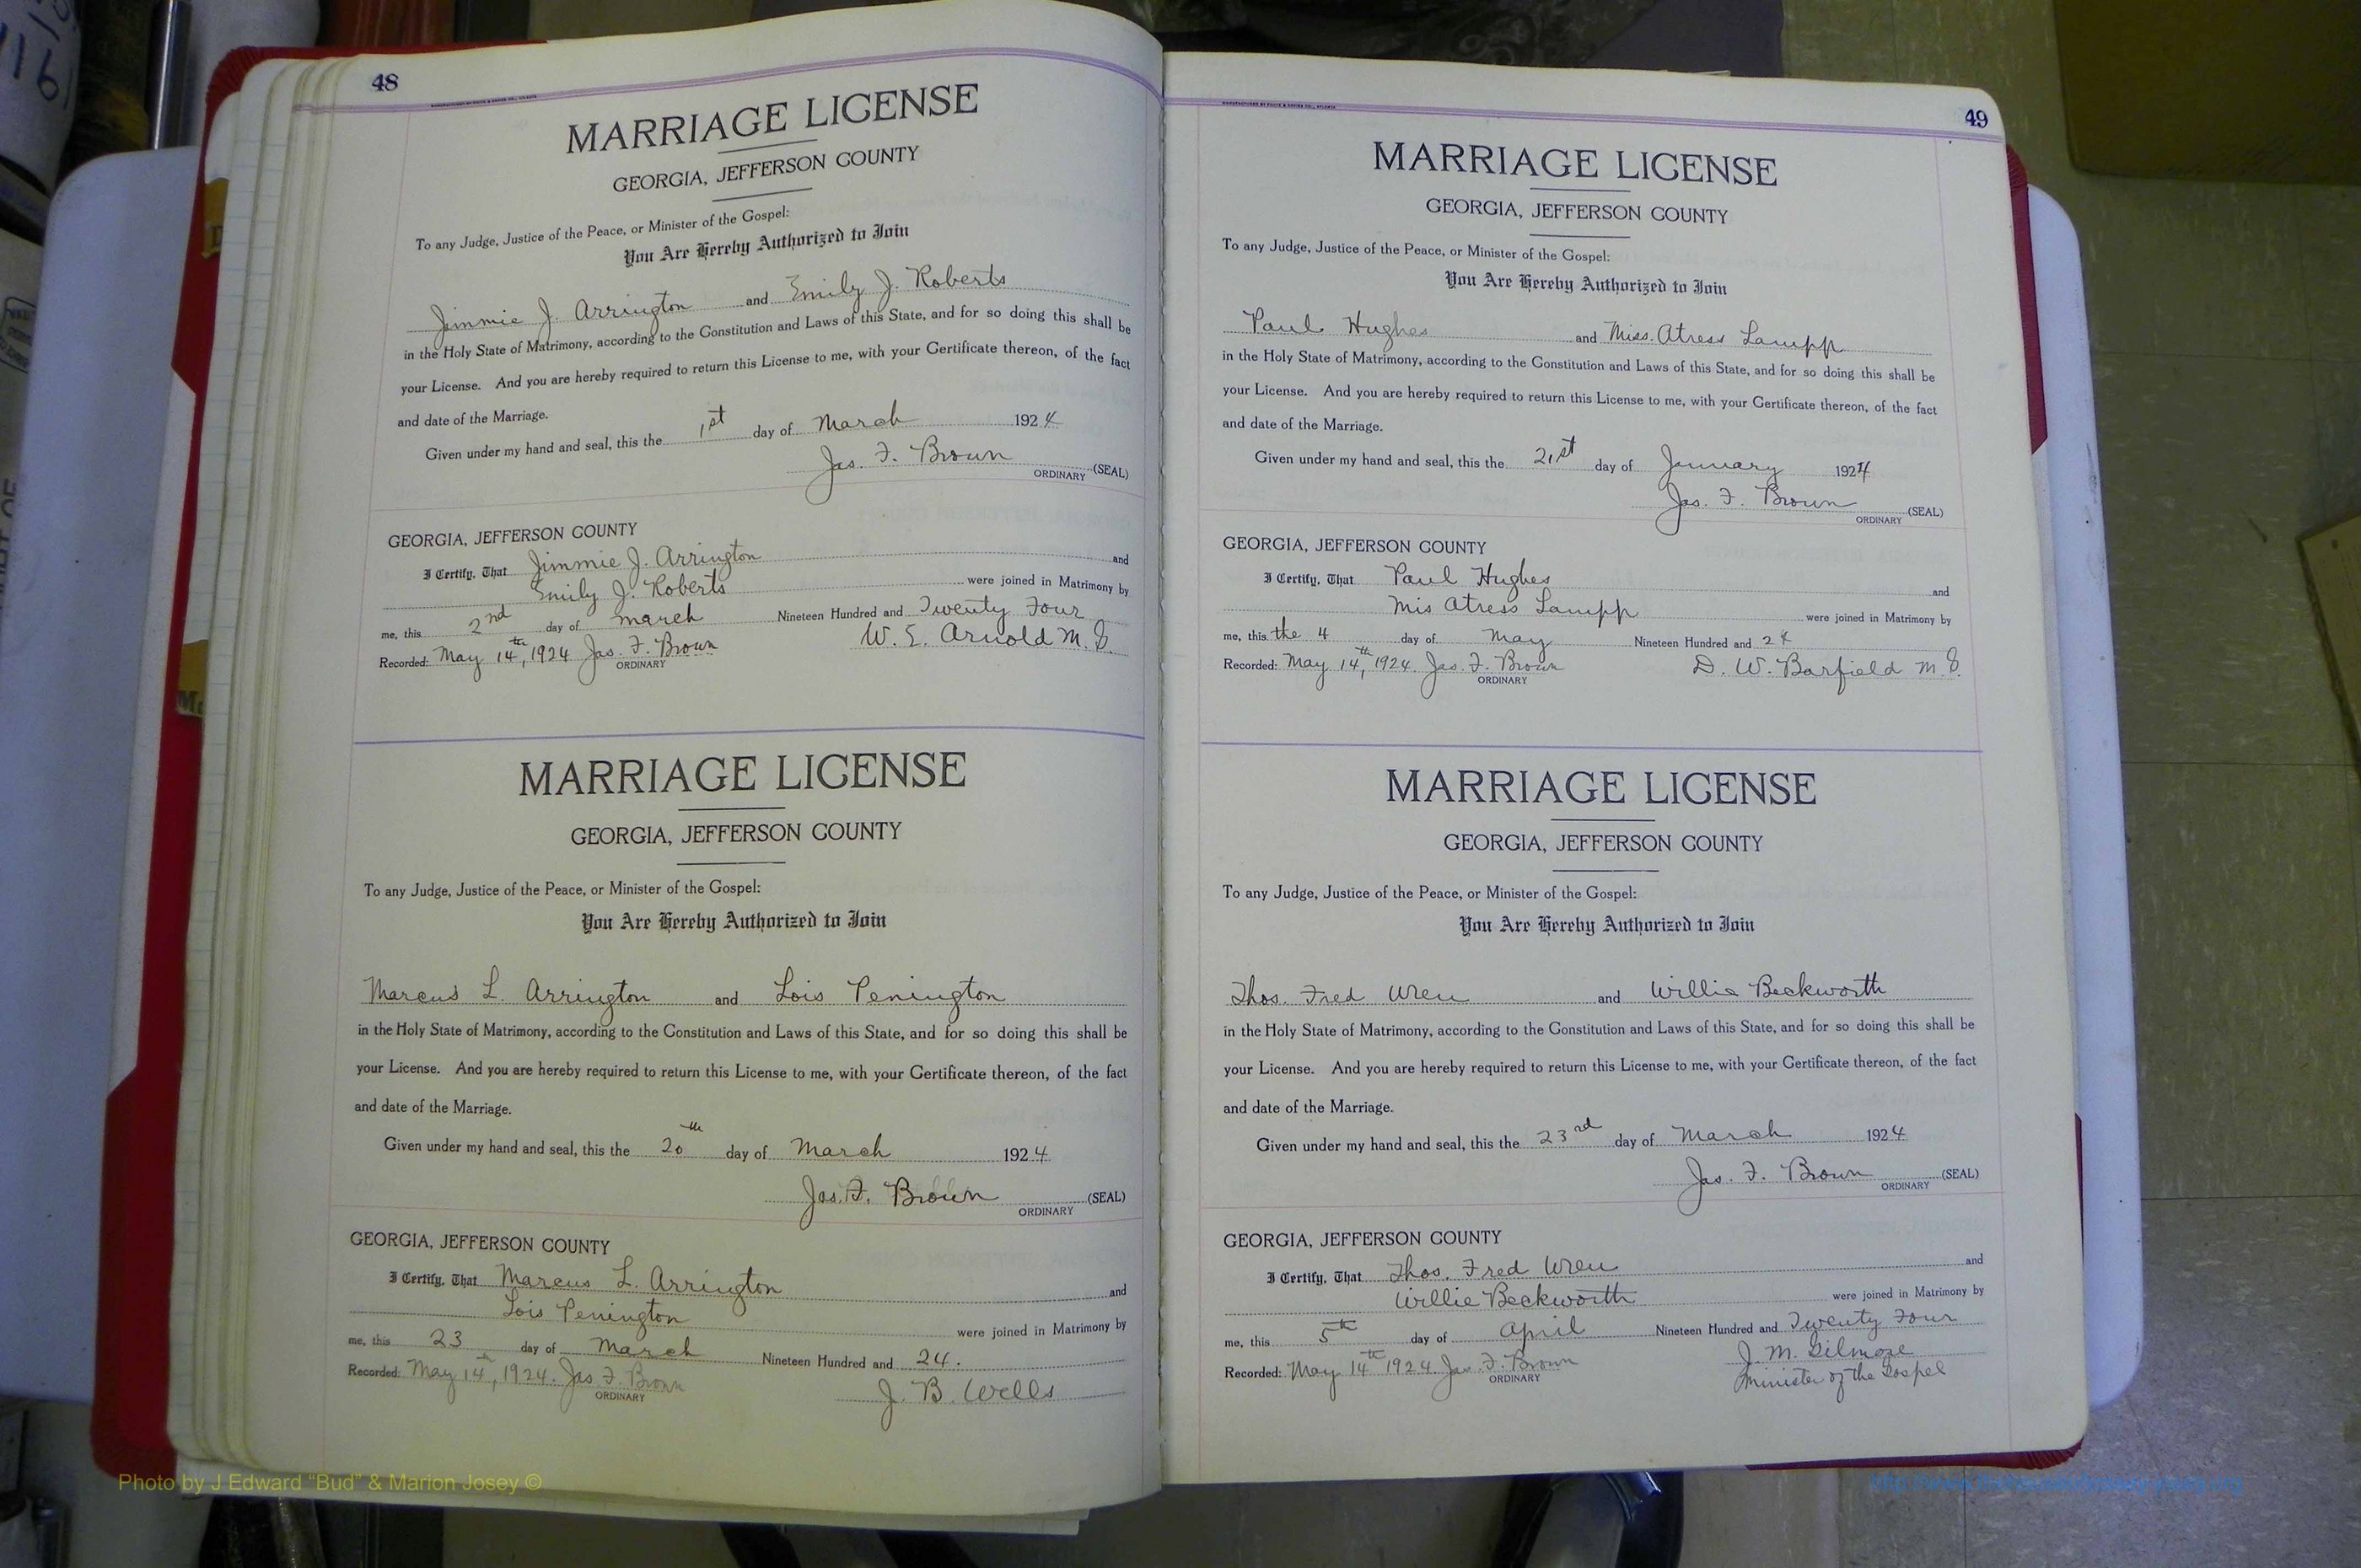 48
MARRIAGE LICENSE
GEORGIA, JEFFERSON COUNTY
To any Judge, Justice of the Peace, or Minister of the Gospel:
You Are Hereby Authorized to Join
Jimmie J. Arrington and Emily J. Roberts
in the Holy State of Matrimony, according to the Constitution and Laws of this State, and for so doing this shall be
your License. And you are hereby required to return this License to me, with your Certificate thereon, of the fact
and date of the Marriage.
Given under my hand and seal, this the 1st day of March 1924
Jas. F. Brown (SEAL)
ORDINARY
GEORGIA, JEFFERSON COUNTY
I Certify, That Jimmie J. Arrington and
Emily J. Roberts were joined in Matrimony by
me, this 2nd day of March Nineteen Hundred and Twenty Four
Recorded: May 14th, 1924 Jas. F. Brown W. E. Arnold M. G.
ORDINARY
MARRIAGE LICENSE
GEORGIA, JEFFERSON COUNTY
To any Judge, Justice of the Peace, or Minister of the Gospel:
You Are Hereby Authorized to Join
Marcus L. Arrington and Lois Penington
in the Holy State of Matrimony, according to the Constitution and Laws of this State, and for so doing this shall be
your License. And you are hereby required to return this License to me, with your Certificate thereon, of the fact
and date of the Marriage.
Given under my hand and seal, this the 20th day of March 1924
Jas. F. Brown (SEAL)
ORDINARY
GEORGIA, JEFFERSON COUNTY
I Certify, That Marcus L. Arrington and
Lois Penington were joined in Matrimony by
me, this 23 day of March Nineteen Hundred and 24.
Recorded: May 14th, 1924. Jas. F. Brown J. B. Wells
ORDINARY
49
MARRIAGE LICENSE
GEORGIA, JEFFERSON COUNTY
To any Judge, Justice of the Peace, or Minister of the Gospel:
You Are Hereby Authorized to Join
Paul Hughes and Miss. Atress Lampp
in the Holy State of Matrimony, according to the Constitution and Laws of this State, and for so doing this shall be
your License. And you are hereby required to return this License to me, with your Certificate thereon, of the fact
and date of the Marriage.
Given under my hand and seal, this the 21st day of January 1924
Jas. F. Brown (SEAL)
ORDINARY
GEORGIA, JEFFERSON COUNTY
I Certify, That Paul Hughes and
Mis Atress Lampp were joined in Matrimony by
me, this the 4 day of May Nineteen Hundred and 24
Recorded: May 14th, 1924. Jas. F. Brown D. W. Barfield M. G.
ORDINARY
MARRIAGE LICENSE
GEORGIA, JEFFERSON COUNTY
To any Judge, Justice of the Peace, or Minister of the Gospel:
You Are Hereby Authorized to Join
Thos. Fred Wren and Willie Beckworth
in the Holy State of Matrimony, according to the Constitution and Laws of this State, and for so doing this shall be
your License. And you are hereby required to return this License to me, with your Certificate thereon, of the fact
and date of the Marriage.
Given under my hand and seal, this the 23rd day of March 1924
Jas. F. Brown (SEAL)
ORDINARY
GEORGIA, JEFFERSON COUNTY
I Certify, That Thos. Fred Wren and
Willie Beckworth were joined in Matrimony by
me, this 5th day of April Nineteen Hundred and Twenty Four
J. M. Gilmore
Recorded: May 14th 1924. Jas. F. Brown Minister of the Gospel
ORDINARY
Photo by J Edward "Bud" & Marion Josey ©